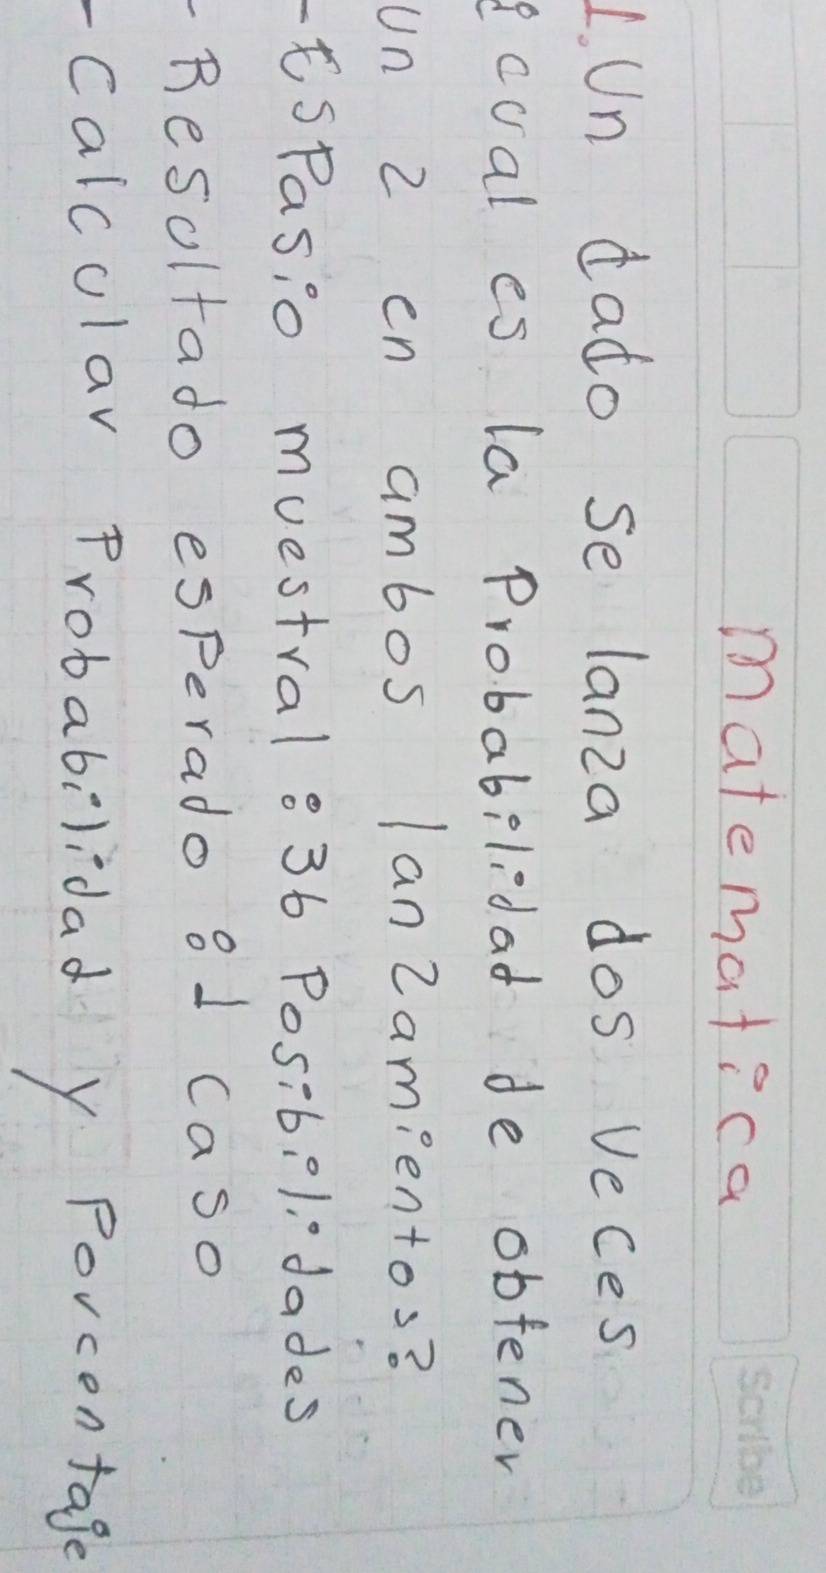 matematica
Scribe
1. Un dado se lanza dos veces
¿cual es la Probabilidad de obtener
un 2 en ambos lanzamientos?
- Espasio muestral: 36 Posibilidades
- Resultado esperado: 1 caso
- Calcular Probabilidad y Porcentaje